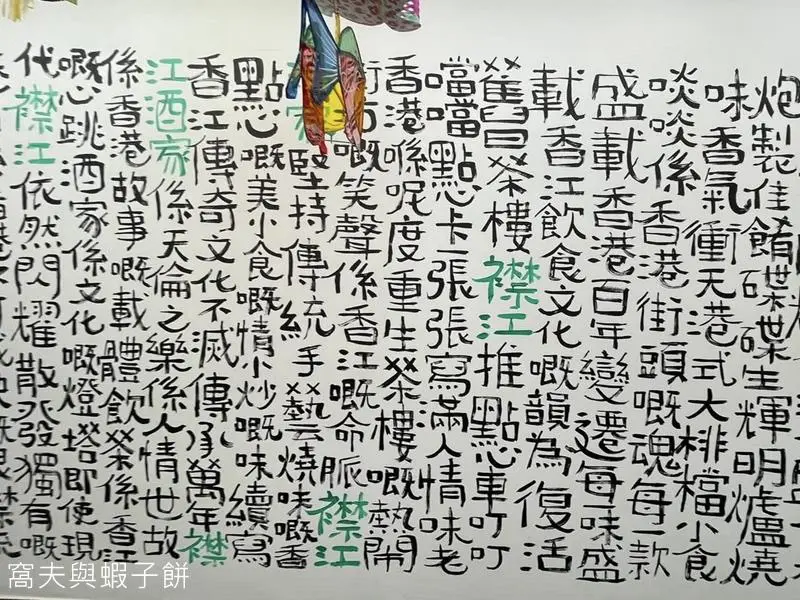 炮製佳餚碟碟生輝明爐燒
味香氣衝天港式大排檔小食
啖啖係香港街頭嘅魂每一款
盛載香港百年變遷每一味盛
載香江飲食文化嘅韻為復活
舊日茶樓襟江推點心車叮叮
噹噹點心卡一張張寫滿人情味老
香港喺呢度重生茶樓嘅熱鬧
街嘅笑聲係香江嘅命脈襟江
家堅持傳統手藝燒味嘅香
點心嘅美小食嘅情小炒嘅味續寫
香江傳奇文化不滅傳承萬年襟
江酒家係天倫之樂係人情世故
係香港故事嘅載體飲茶係香江
嘅心跳酒家係文化嘅燈塔即使現
代襟江依然閃耀散發獨有嘅
窩夫與蝦子餅